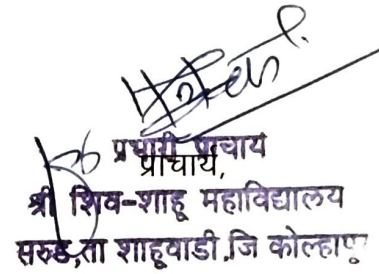 प्रभारी प्राचार्य
प्राचार्य,
श्री शिव-शाहू महाविद्यालय
सरुड,ता शाहूवाडी,जि कोल्हापूर